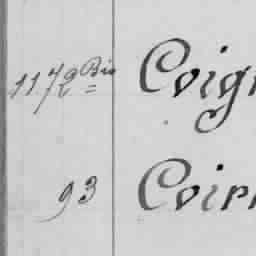 1172 Bis Coign
93 Coirn